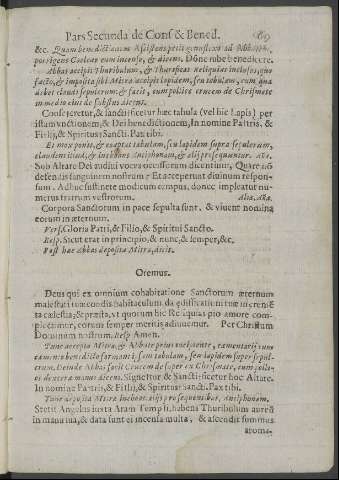 Pars Secunda de Conf & Bened.
&c. Quam benedictionem Assistens petit genuflexus ad Abbatem,
porrigens Cocleas cum incenso, & dicens. Domne iube benedicere.
Abbas accipit Thuribulum, & Thurificat Reliquias inclusas, quo
facto, & imposita sibi Mitra accipit lapidem, seu tabulam, cum qua
debet claudi sepulcrum: & facit, cum pollice crucem de Chrismate
in medio eius de subtus dicens.
Consecretur, & sanctificetur hæc tabula (vel hic lapis) per
istam vnctionem, & Dei benedictionem, In nomine Pa†tris, &
Fi†lij, & Spiritus † Sancti. Pax tibi.
Et mox ponit, & coaptat tabulam, seu lapidem supra sepulcrum,
claudens illud, & inchoans Antiphonam, & alij prosequuntur. Ana.
Sub Altare Dei audiui voces occisorum dicentium, Quare nō
defendis sanguinem nostrum? Et acceperunt diuinum respon-
sum. Adhuc sustinete modicum tempus, donec impleatur nu-
merus fratrum vestrorum. Alia. Aña.
Corpora Sanctorum in pace sepulta sunt, & viuent nomina
eorum in æternum.
Vers. Gloria Patri, & Filio, & Spiritui Sancto.
Resp. Sicut erat in principio, & nunc, & semper, &c.
Post hæc Abbas deposita Mitra, dicit.
Oremus.
Deus qui ex omnium cohabitatione Sanctorum æternum
maiestati tuæ condis habitaculum, da ædificationi tuæ incremē
ta cælestia, & præsta, vt quorum hic Reliquias pio amore com-
plectimur, eorum semper meritis adiuuemur. Per Christum
Dominum nostrum. Resp Amen.
Tunc accepta Mitra, & Abbate prius incipiente, cæmentarij cum
cæmento benedicto formant, tabulam, seu lapidem super sepul-
crum. Deinde Abbas facit Crucem de super ex Chrismate, cum polli-
ce dexteræ manus dicens. Signe†tur & Sancti†ficetur hoc Altare.
In nomine Pa†tris, & Fi†lij, & Spiritus † Sancti. Pax tibi.
Tunc deposita Mitra Inchoat alijs prosequentibus, Antiphonam.
Stetit Angelus iuxta Aram Templi, habens Thuribulum aureū
in manu sua, & data sunt ei incensa multa, & ascendit fumus
aroma-